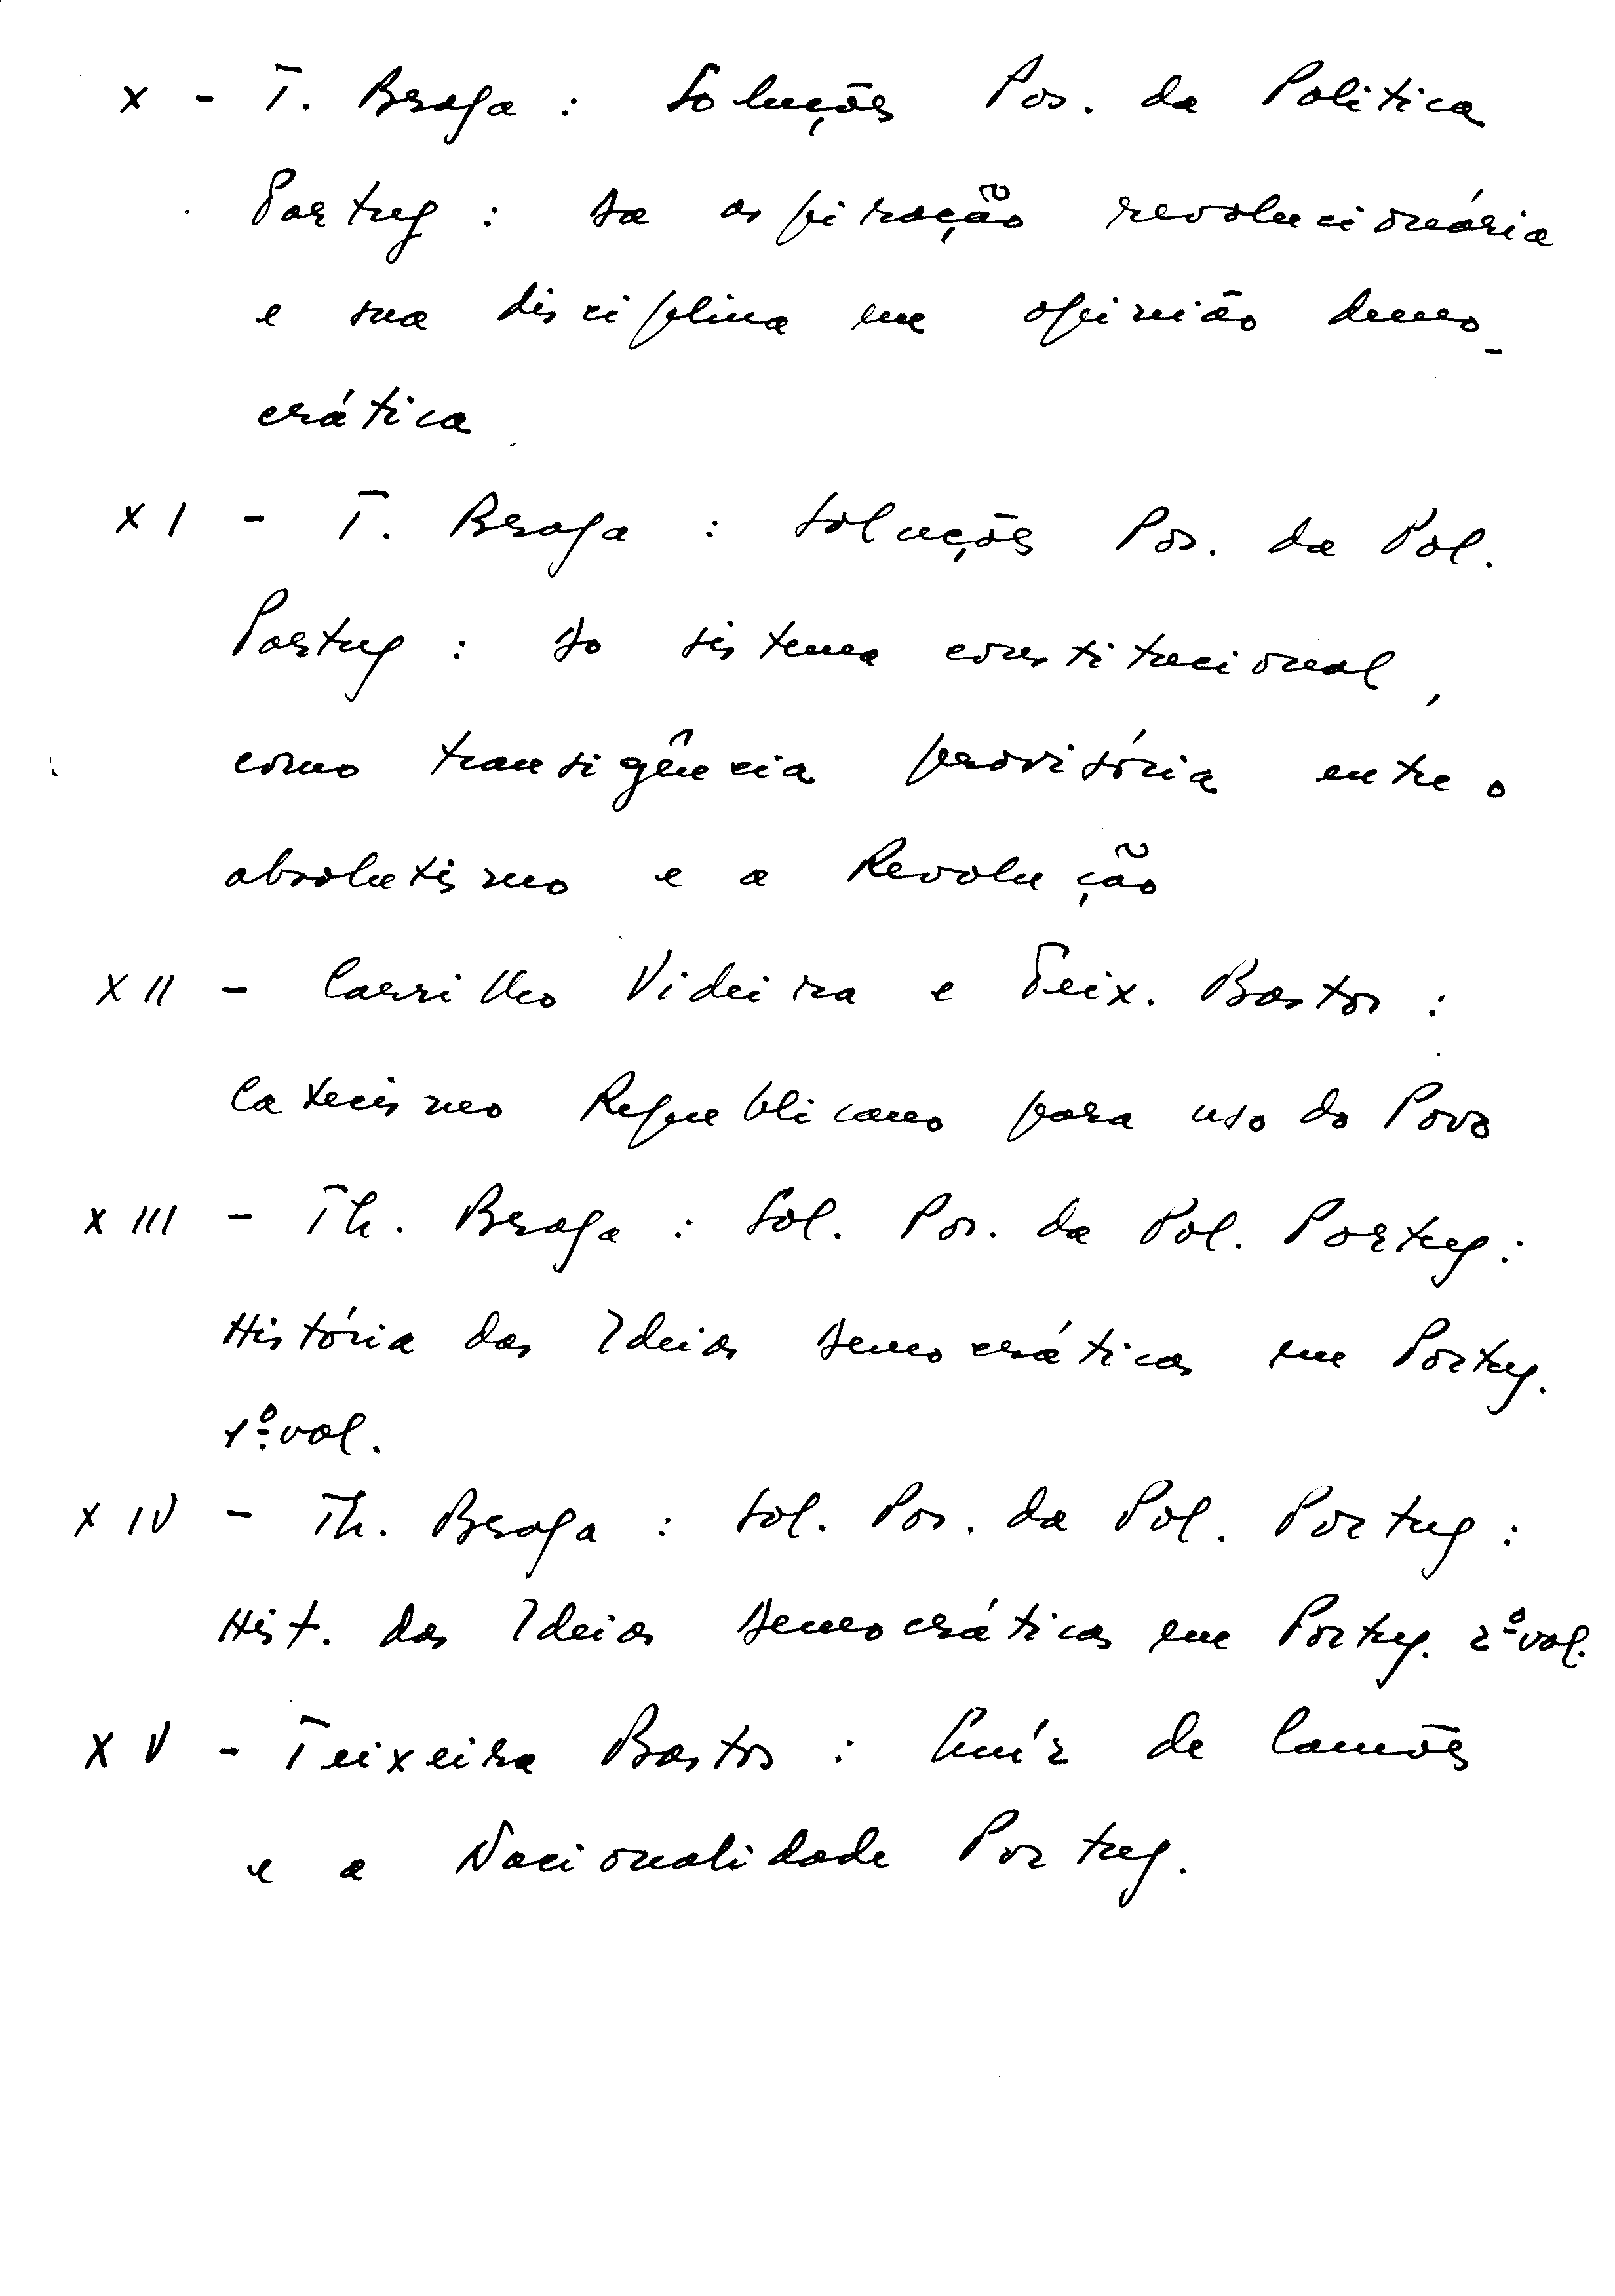 X - T. Braga : Soluções Pos. da Politica
Portug : Da aspiração revolucionária
e sua disciplina em opinião demo-
crática
XI - T. Braga : Soluções Pos. da Pol.
Portug : Do sistema constitucional,
como transigência provisória entre o
absolutismo e a Revolução
XII - Carrilho Videira e Teix. Bastos :
Catecismo Republicano para uso do Povo
XIII - Th. Braga : Sol. Pos. da Pol. Portug :
História das Ideias Democráticas em Portug.
1º vol.
XIV - Th. Braga : Sol. Pos. da Pol. Portug :
Hist. das Ideias Democráticas em Portug. 2º vol.
XV - Teixeira Bastos : Luíz de Camões
e a Nacionalidade Portug.